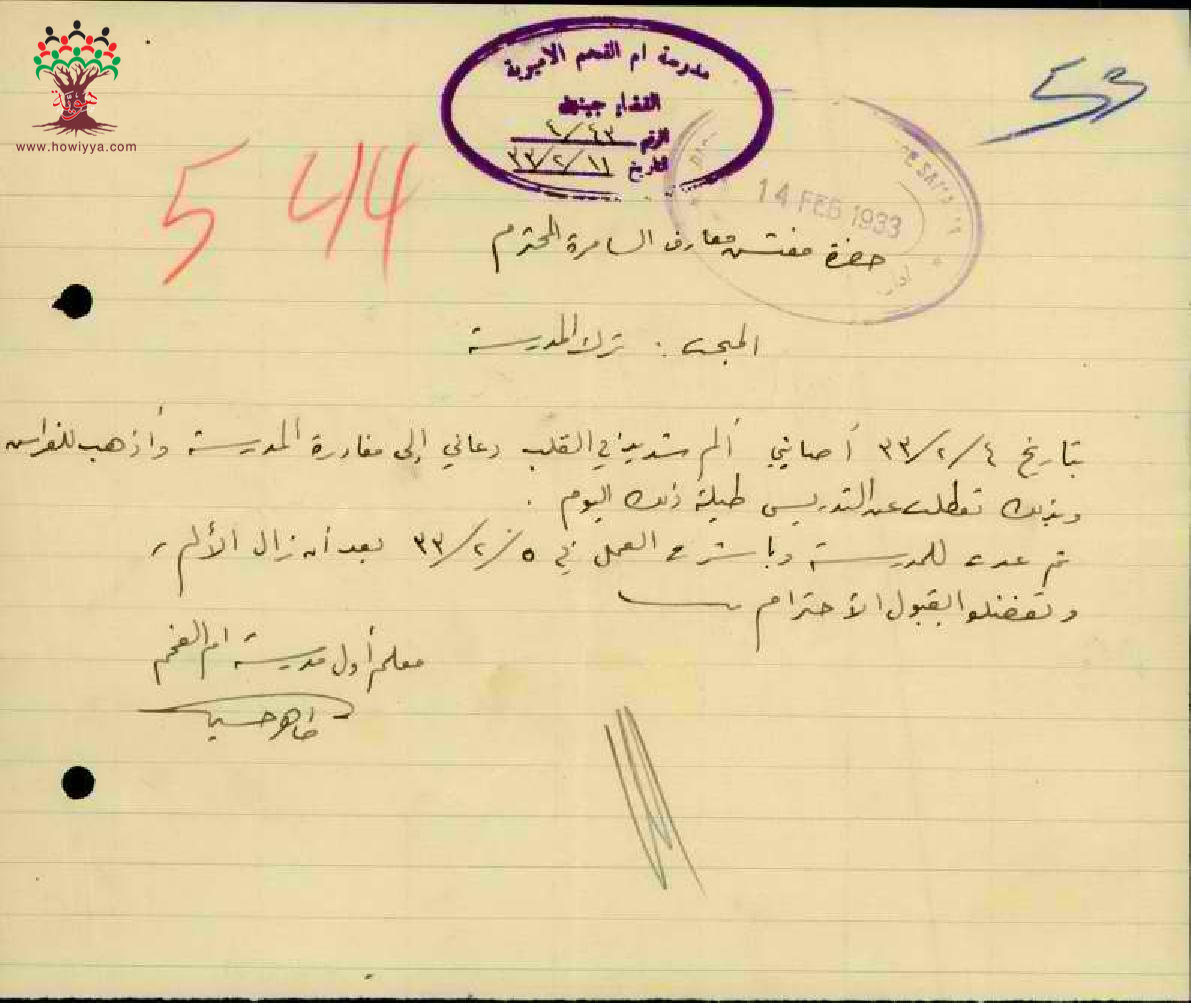 هوية
www.howiyya.com
مدرسة ام الفحم الاميرية
القضاء جينين
الرقم ٤/٤٣
التاريخ ٣٣/٢/١١
53
5 44
14 FEB 1933
حضرة مفتش معارف السامرة المحترم
المبحث : ترك المدرسة
بتاريخ ٣٣/٢/٤ أصابني ألم شديد في القلب دعاني إلى مغادرة المدرسة وأذهب للفراش
وبذلك تعطلت عن التدريس طيلة ذلك اليوم .
ثم عدت للمدرسة وباشرت العمل في ٣٣/٢/٥ بعد أن زال الألم
وتفضلوا بقبول الاحترام
معلم أول مدرسة ام الفحم